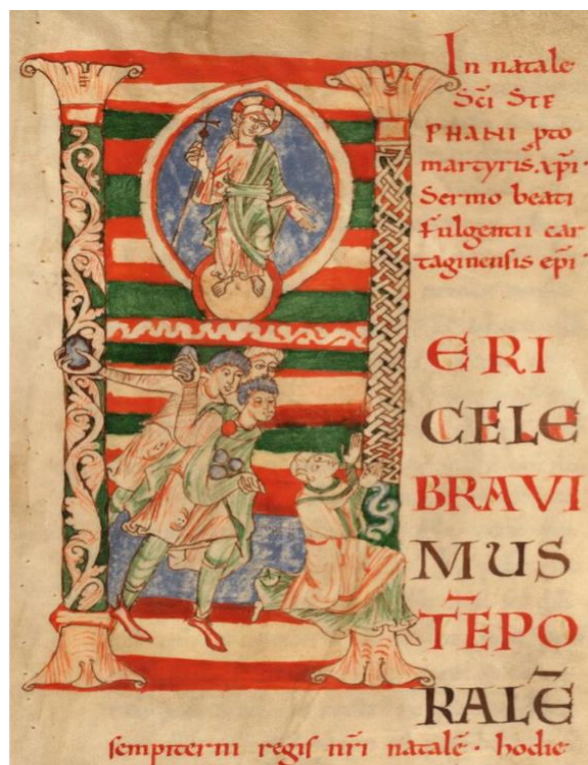 In natale
Sc̄i STE
PHANI p̱to
martyris xp̄i·
Sermo beati
fulgentii car
taginensis ep̄i·
H
ERI
CELE
BRAVI
MUS
T̄EPO
RALĒ
sempiterni regis nr̄i natalē· hodie